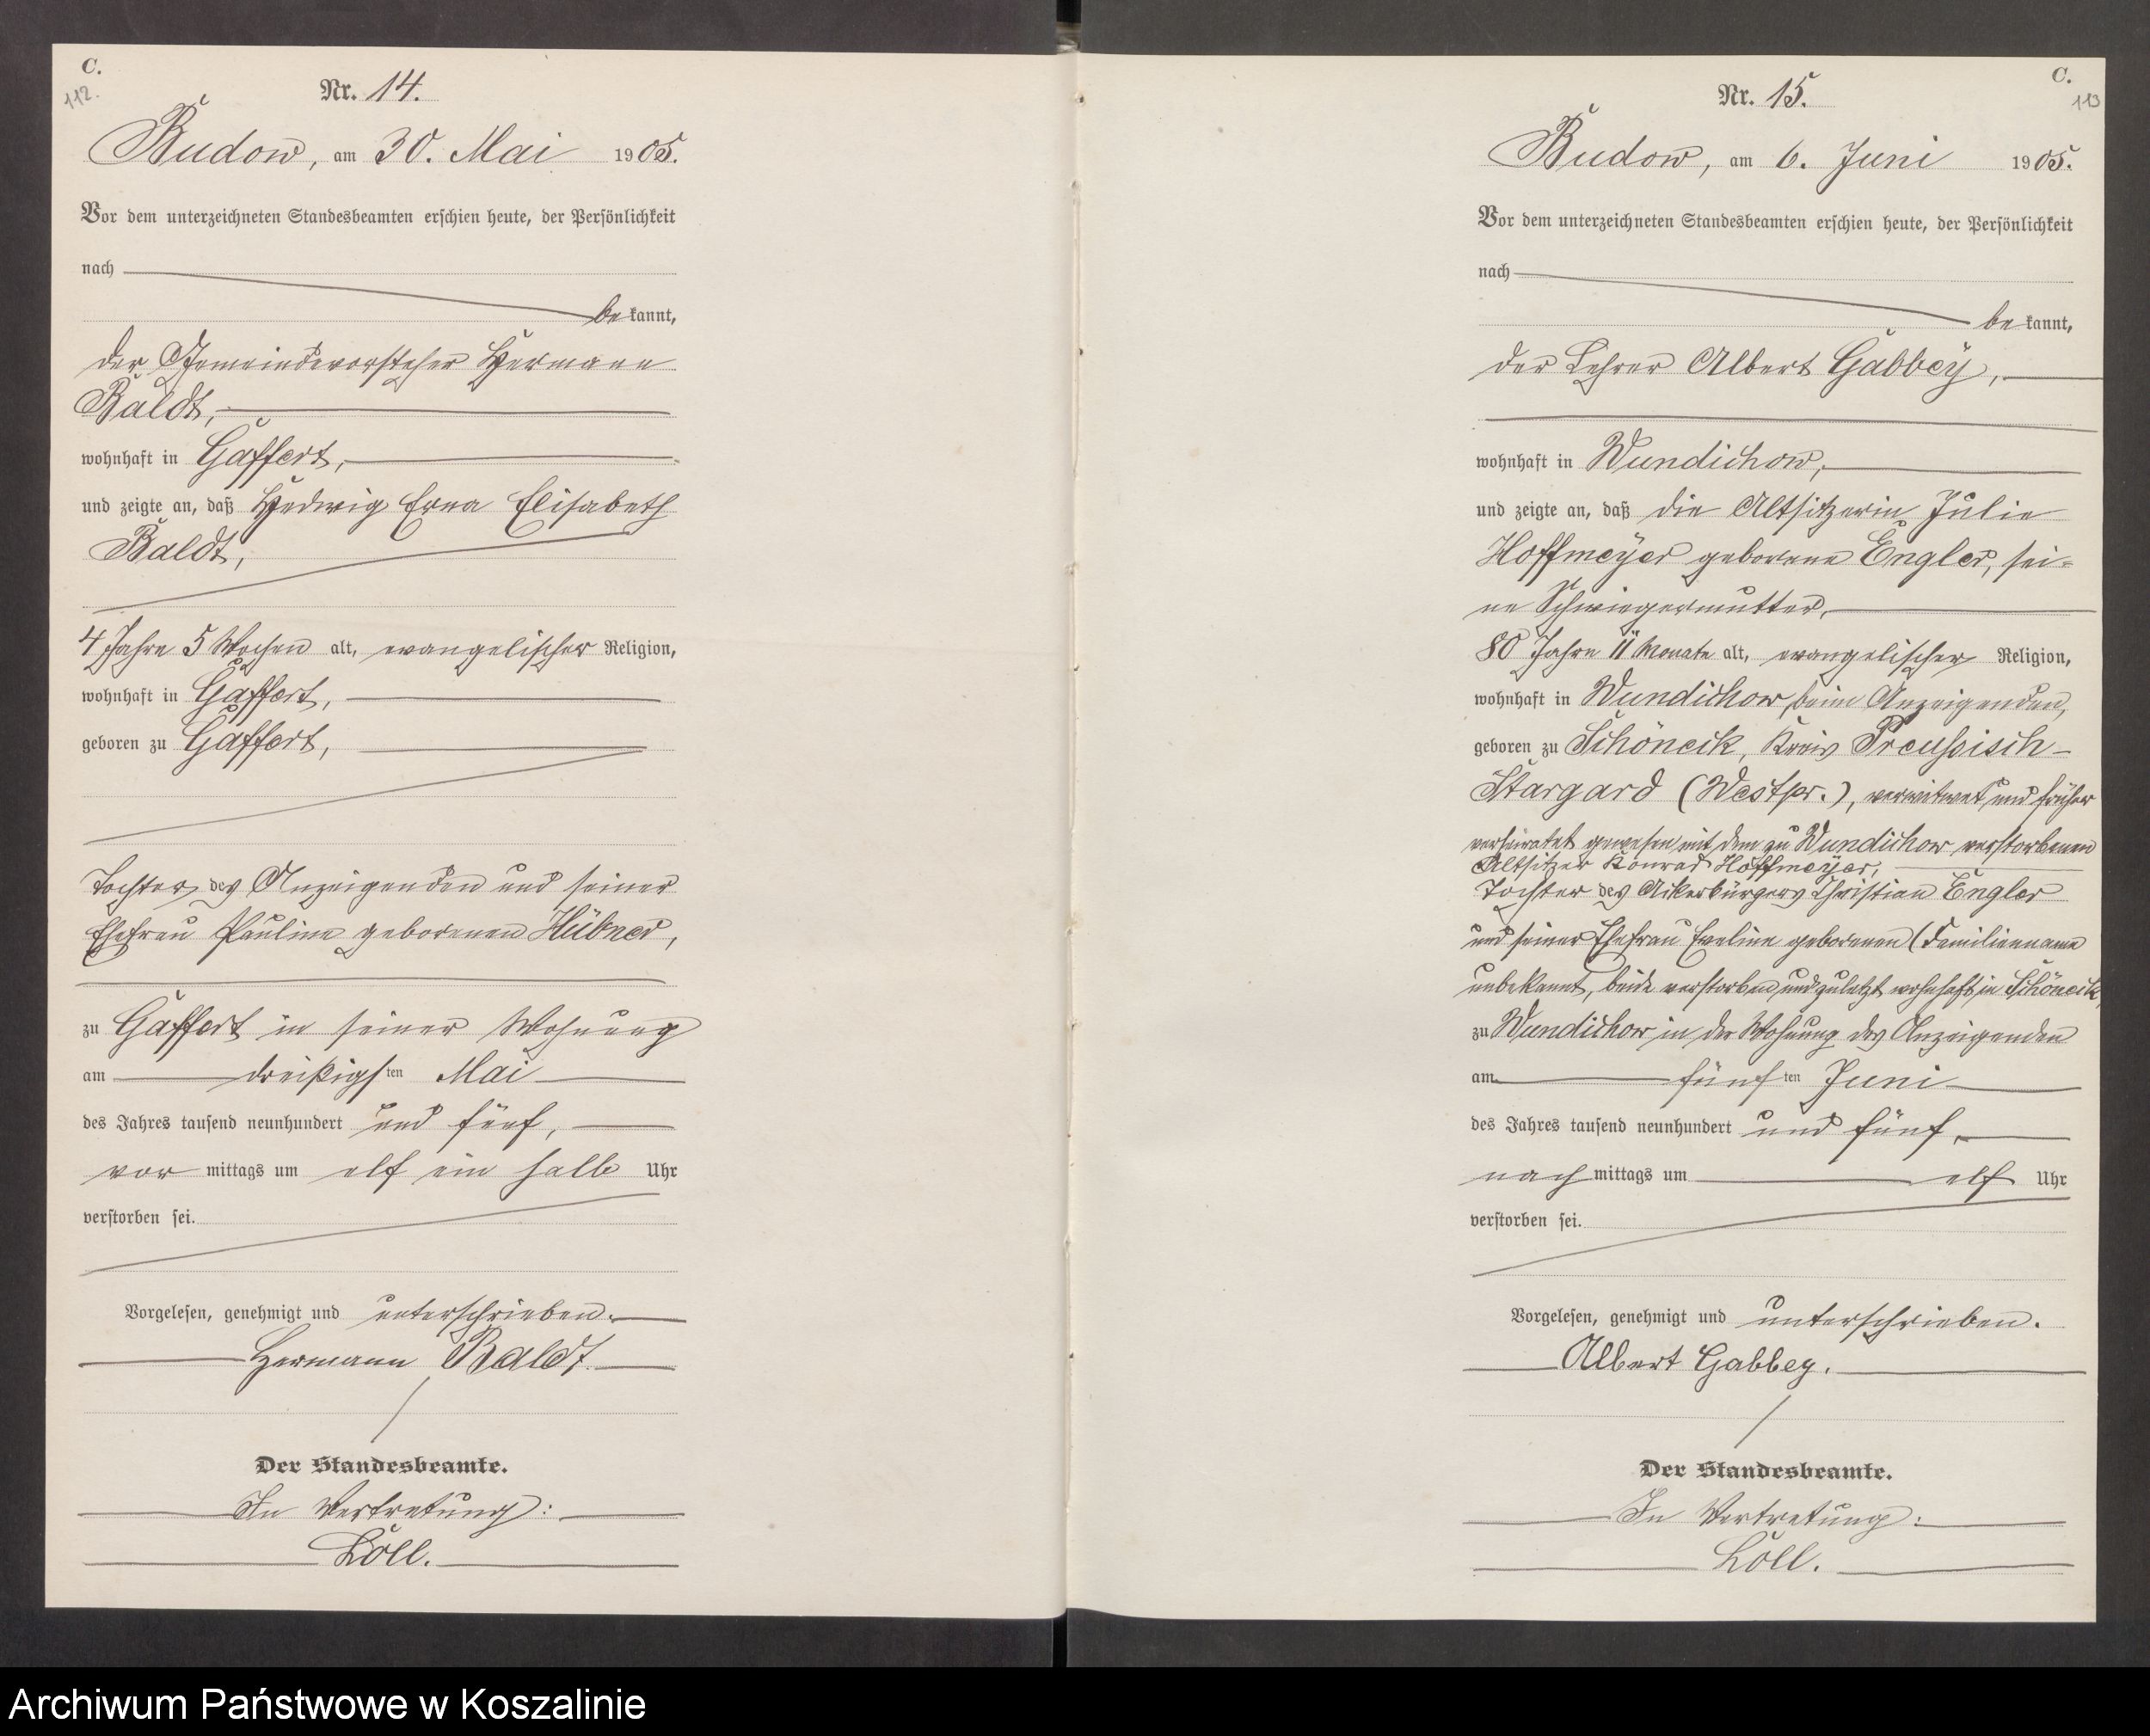 C.
112.
Nr. 14.
Budow, am 30. Mai 1905.
Vor dem unterzeichneten Standesbeamten erschien heute, der Persönlichkeit
nach
bekannt,
der Gemeindevorsteher Hermann
Baldt,
wohnhaft in Gaffert,
und zeigte an, daß Hedwig Erna Elisabeth
Baldt,
4 Jahre 5 Wochen alt, evangelischer Religion,
wohnhaft in Gaffert,
geboren zu Gaffert,
Tochter des Anzeigenden und seiner
Ehefrau Pauline geborenen Hübner,
zu Gaffert in seiner Wohnung
am dreißigsten Mai
des Jahres tausend neunhundert und fünf,
vor mittags um elf ein halb Uhr
verstorben sei.
Vorgelesen, genehmigt und unterschrieben.
Hermann Baldt.
Der Standesbeamte.
In Vertretung:
Löll.
C.
113
Nr. 15.
Budow, am 6. Juni 1905.
Vor dem unterzeichneten Standesbeamten erschien heute, der Persönlichkeit
nach
bekannt,
der Lehrer Albert Gabbey,
wohnhaft in Wundichow,
und zeigte an, daß die Altsitzerin Julie
Hoffmeyer geborene Engler, sei=
ne Schwiegermutter,
80 Jahre 11 Monate alt, evangelischer Religion,
wohnhaft in Wundichow beim Anzeigenden,
geboren zu Schöneck, Kreis Preußisch-
Stargard (Westpr.), verwitwet und früher
verheiratet gewesen mit dem zu Wundichow verstorbenen
Altsitzer Konrad Hoffmeyer,
Tochter des Ackerbürgers Christian Engler
und seiner Ehefrau Eveline geborenen (Familienname
unbekannt, beide verstorben und zuletzt wohnhaft in Schöneck,
zu Wundichow in der Wohnung des Anzeigenden
am fünften Juni
des Jahres tausend neunhundert und fünf,
nach mittags um elf Uhr
verstorben sei.
Vorgelesen, genehmigt und unterschrieben.
Albert Gabbey.
Der Standesbeamte.
In Vertretung:
Löll.
Archiwum Państwowe w Koszalinie